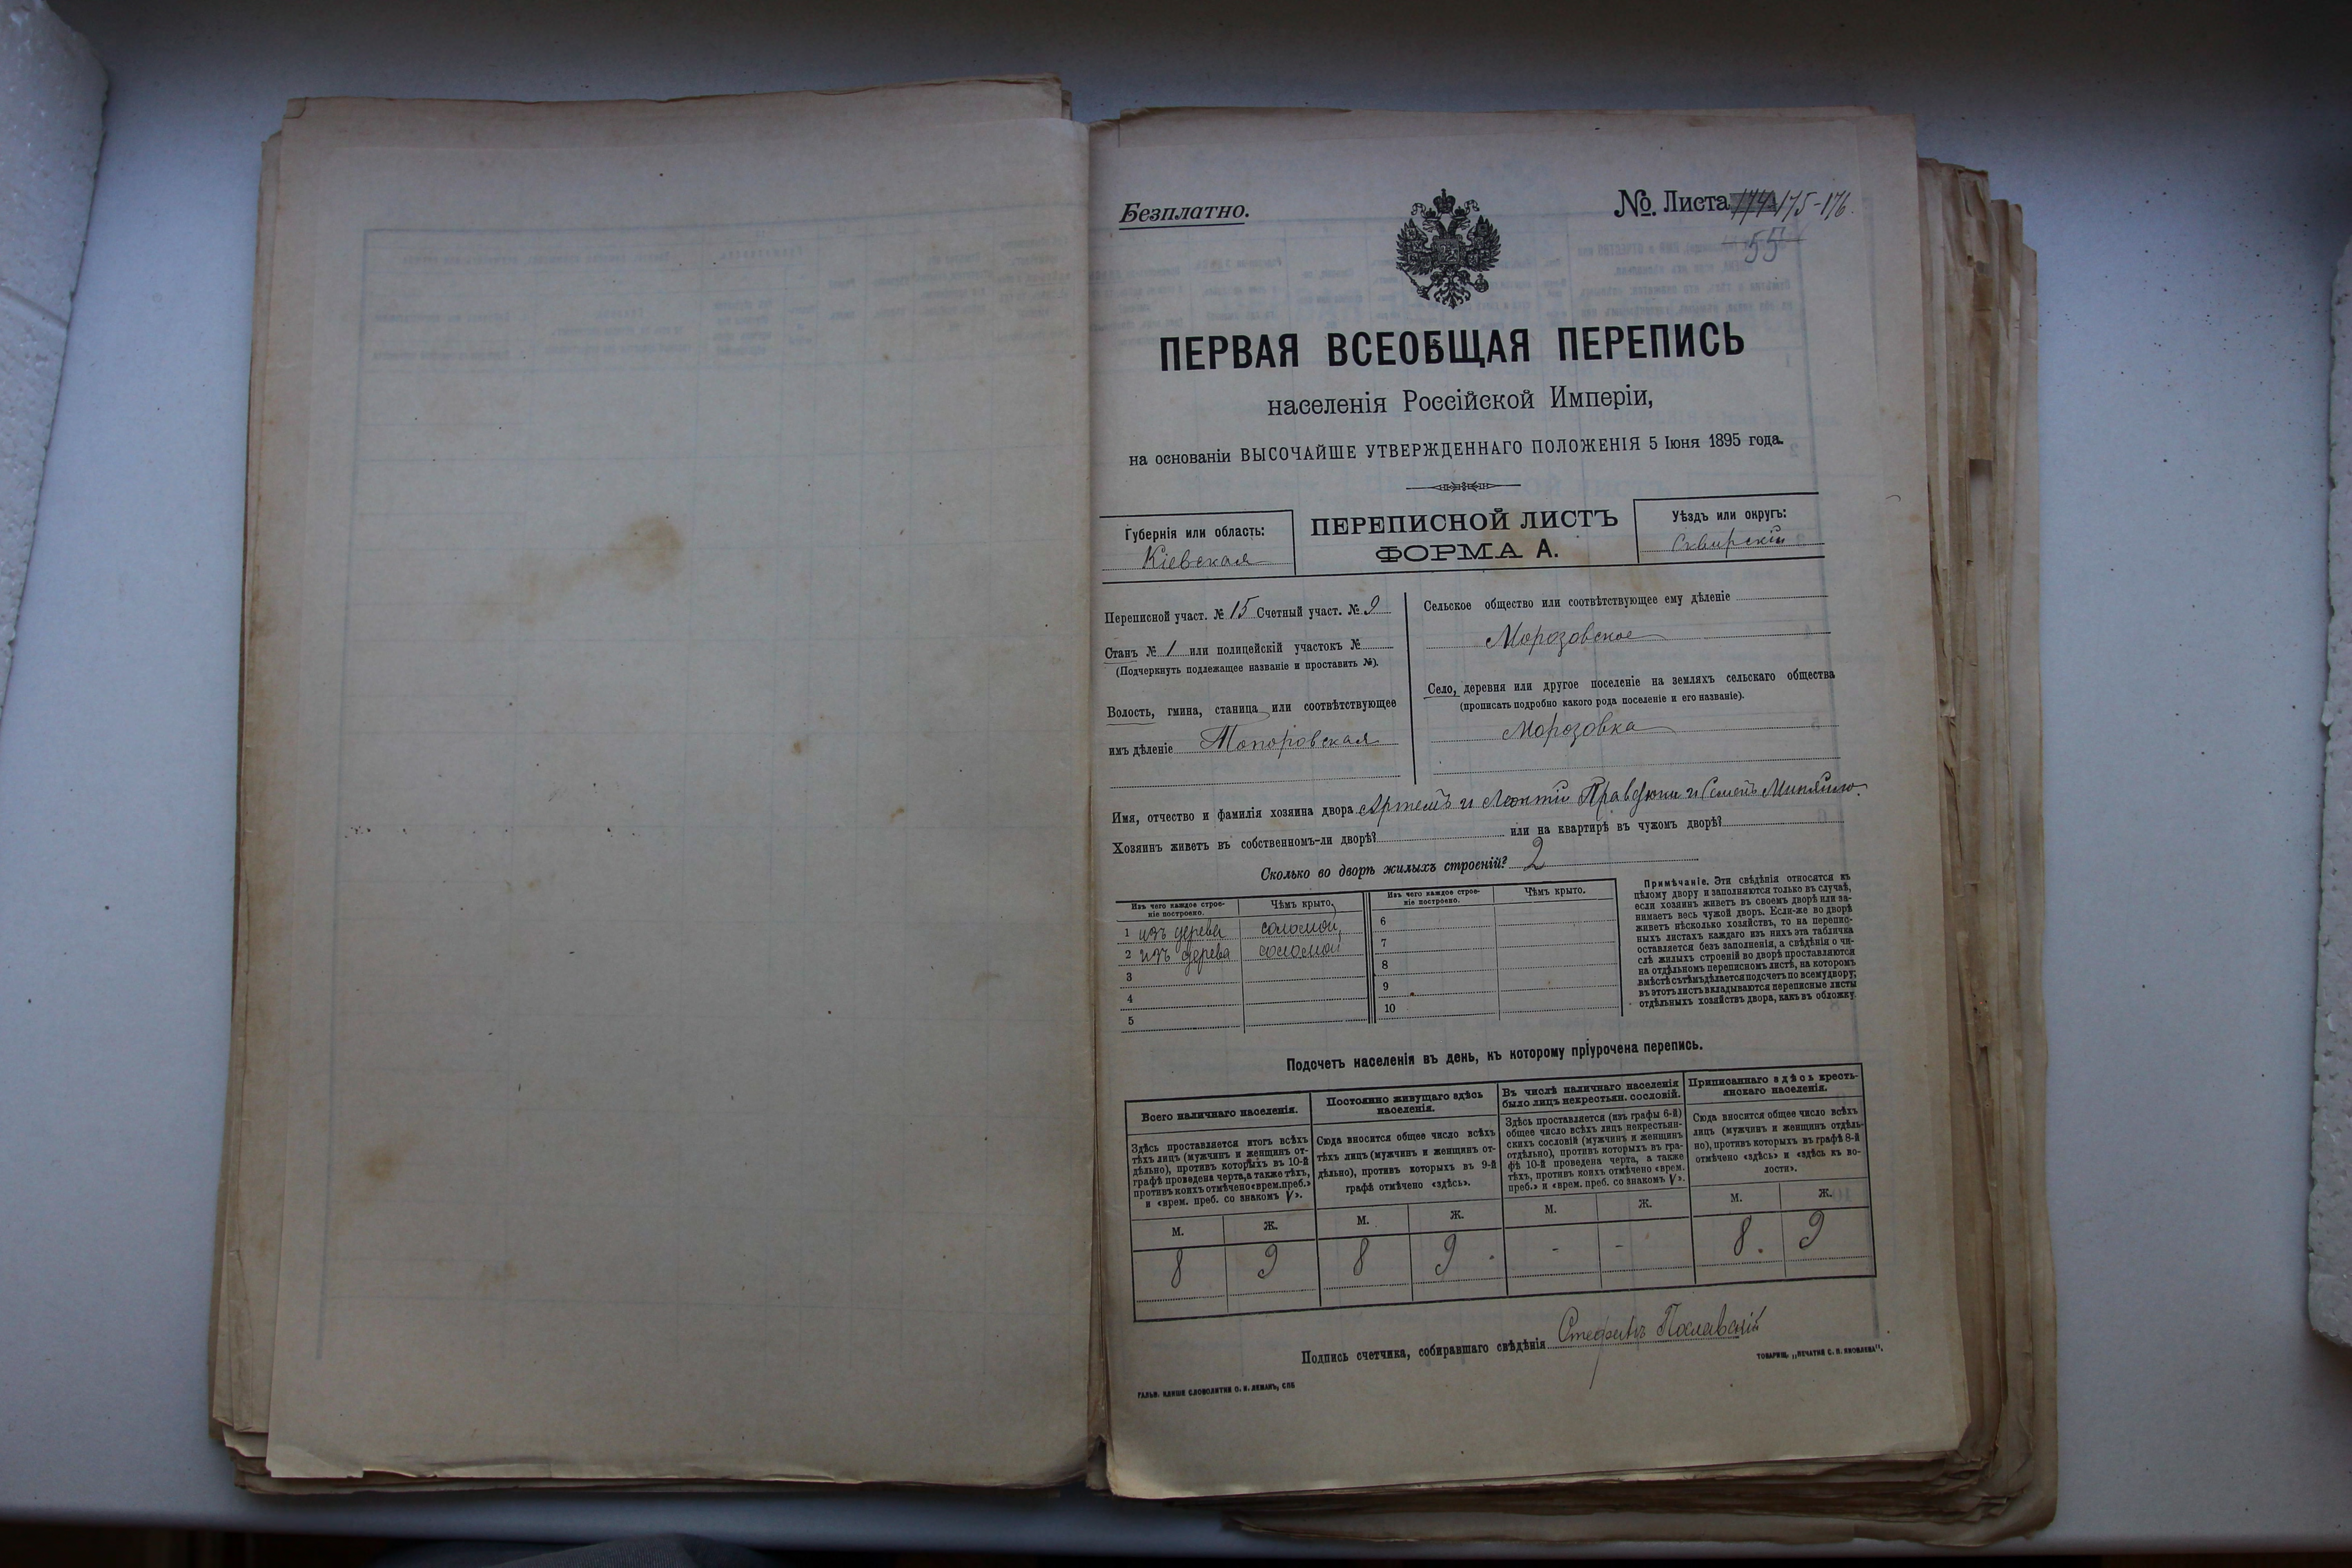 Безплатно.
№. Листа 174 175-176.
55
ПЕРВАЯ ВСЕОБЩАЯ ПЕРЕПИСЬ
населенія Россійской Имперіи,
на основаніи ВЫСОЧАЙШЕ УТВЕРЖДЕННАГО ПОЛОЖЕНІЯ 5 Іюня 1895 года.
Губернія или область:
Кіевская
ПЕРЕПИСНОЙ ЛИСТЪ
ФОРМА А.
Уѣздъ или округъ:
Сквирскій
Переписной участ. № 15 Счетный участ. № 9
Станъ № 1 или полицейскій участокъ №
(Подчеркнуть подлежащее названіе и проставить №).
Волость, гмина, станица или соотвѣтствующее
имъ дѣленіе Топоровская
Сельское общество или соотвѣтствующее ему дѣленіе
Морозовское
Село, деревня или другое поселеніе на земляхъ сельскаго общества
(прописать подробно какого рода поселеніе и его названіе).
Морозовка
Имя, отчество и фамилія хозяина двора Артемъ и Леонтій и Семенъ
Хозяинъ живетъ въ собственномъ-ли дворѣ? или на квартирѣ въ чужомъ дворѣ?
Сколько во дворѣ жилыхъ строеній? 2
Изъ чего каждое строе-
ніе построено.
Чѣмъ крыто.
1 изъ дерева соломой
2 изъ дерева соломой
3
4
5
Изъ чего каждое строе-
ніе построено.
Чѣмъ крыто.
6
7
8
9
10
Примѣчаніе. Эти свѣдѣнія относятся къ
цѣлому двору и заполняются только въ случаѣ,
если хозяинъ живетъ въ своемъ дворѣ или за-
нимаетъ весь чужой дворъ. Если-же во дворѣ
живетъ нѣсколько хозяйствъ, то на перепис-
ныхъ листахъ каждаго изъ нихъ эта табличка
оставляется безъ заполненія, а свѣдѣнія о чи-
слѣ жилыхъ строеній во дворѣ проставляются
на отдѣльномъ переписномъ листѣ, на которомъ
вмѣстѣ съ тѣмъ дѣлается подсчетъ по всему двору;
въ этотъ листъ вкладываются переписные листы
отдѣльныхъ хозяйствъ двора, какъ въ обложку.
Подсчетъ населенія въ день, къ которому пріурочена перепись.
Всего наличнаго населенія.
Здѣсь проставляется итогъ всѣхъ
тѣхъ лицъ (мужчинъ и женщинъ от-
дѣльно), противъ которыхъ въ 10-й
графѣ проведена черта, а также тѣхъ,
противъ коихъ отмѣчено «врем. преб.»
и «врем. преб. со знакомъ V».
М. Ж.
8 9
Постоянно живущаго здѣсь
населенія.
Сюда вносится общее число всѣхъ
тѣхъ лицъ (мужчинъ и женщинъ от-
дѣльно), противъ которыхъ въ 9-й
графѣ отмѣчено «здѣсь».
М. Ж.
8 9
Въ числѣ наличнаго населенія
было лицъ некрестьян. сословій.
Здѣсь проставляется (изъ графы 6-й)
общее число всѣхъ лицъ некрестьян-
скихъ сословій (мужчинъ и женщинъ
отдѣльно), противъ которыхъ въ гра-
фѣ 10-й проведена черта, а также
тѣхъ, противъ коихъ отмѣчено «врем.
преб.» и «врем. преб. со знакомъ V».
М. Ж.
- -
Приписаннаго здѣсь кресть-
янскаго населенія.
Сюда вносится общее число всѣхъ
лицъ (мужчинъ и женщинъ отдѣль-
но), противъ которыхъ въ графѣ 8-й
отмѣчено «здѣсь» и «здѣсь къ во-
лости».
М. Ж.
8. 9
Подпись счетчика, собиравшаго свѣдѣнія
ГАЛЬВ. КЛИШЕ СЛОВОЛИТНИ О. И. ЛЕМАНЪ, СПБ
ТОВАРИЩ. „ПЕЧАТНЯ С. П. ЯКОВЛЕВА".